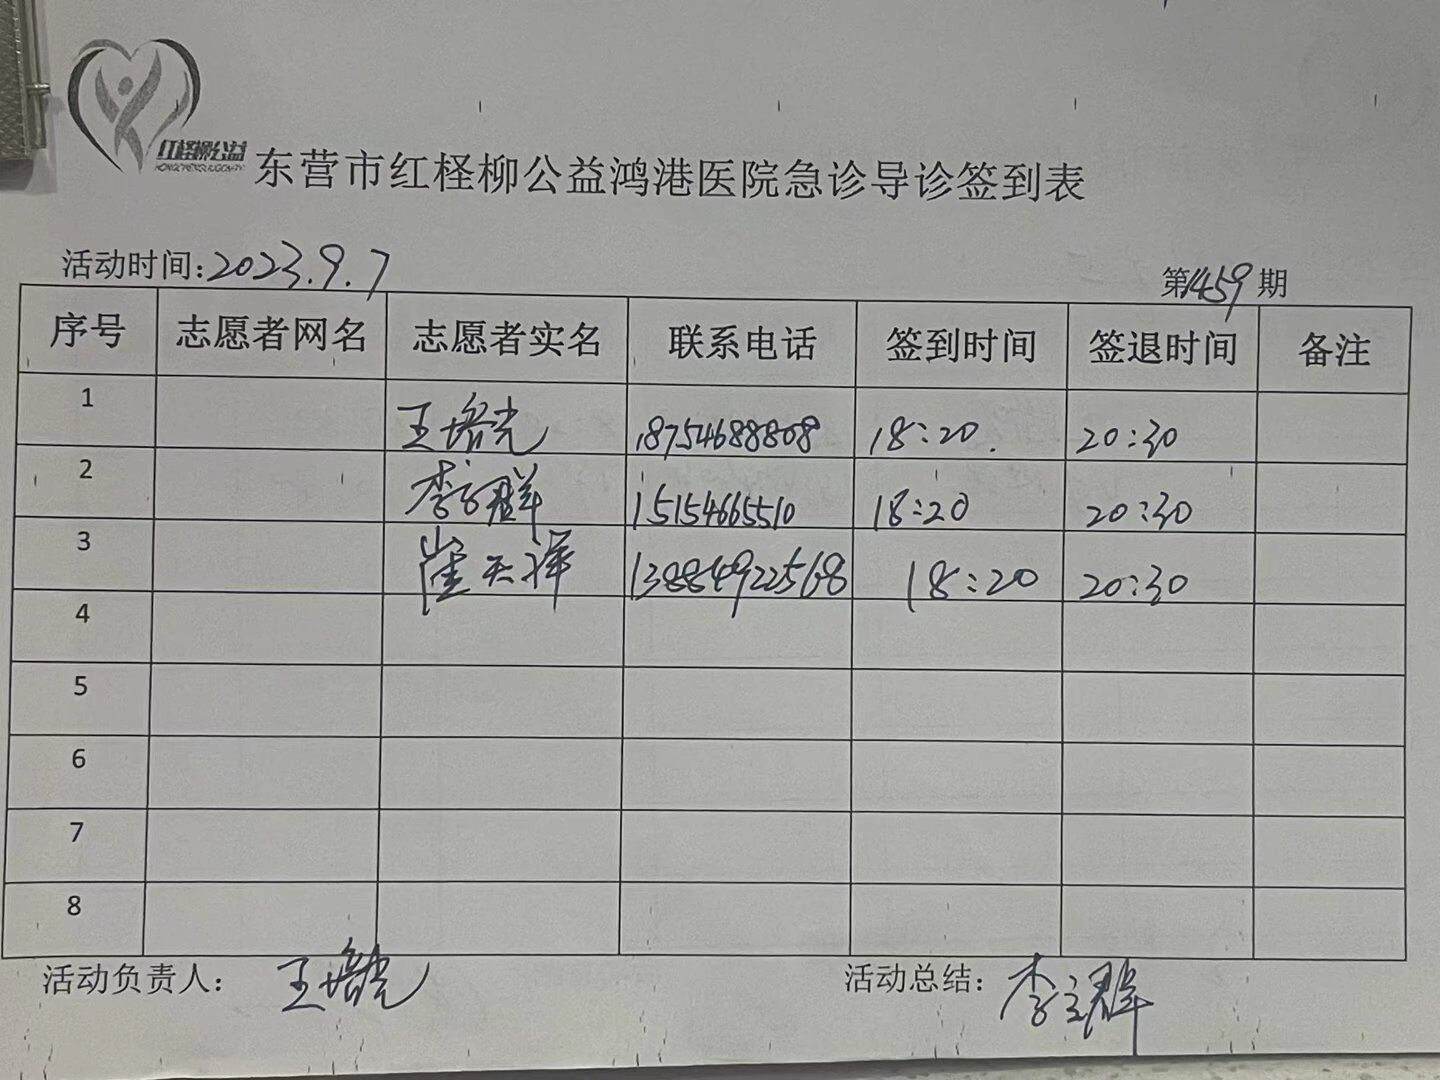 红柽柳公益
东营市红柽柳公益鸿港医院急诊导诊签到表
活动时间：2023.9.7 第1459期
序号 志愿者网名 志愿者实名 联系电话 签到时间 签退时间 备注
1 王培光 18754688808 18:20 20:30
2 李立群 15154665510 18:20 20:30
3 崔天祥 13884922568 18:20 20:30
4
5
6
7
8
活动负责人： 王培光 活动总结：李立群